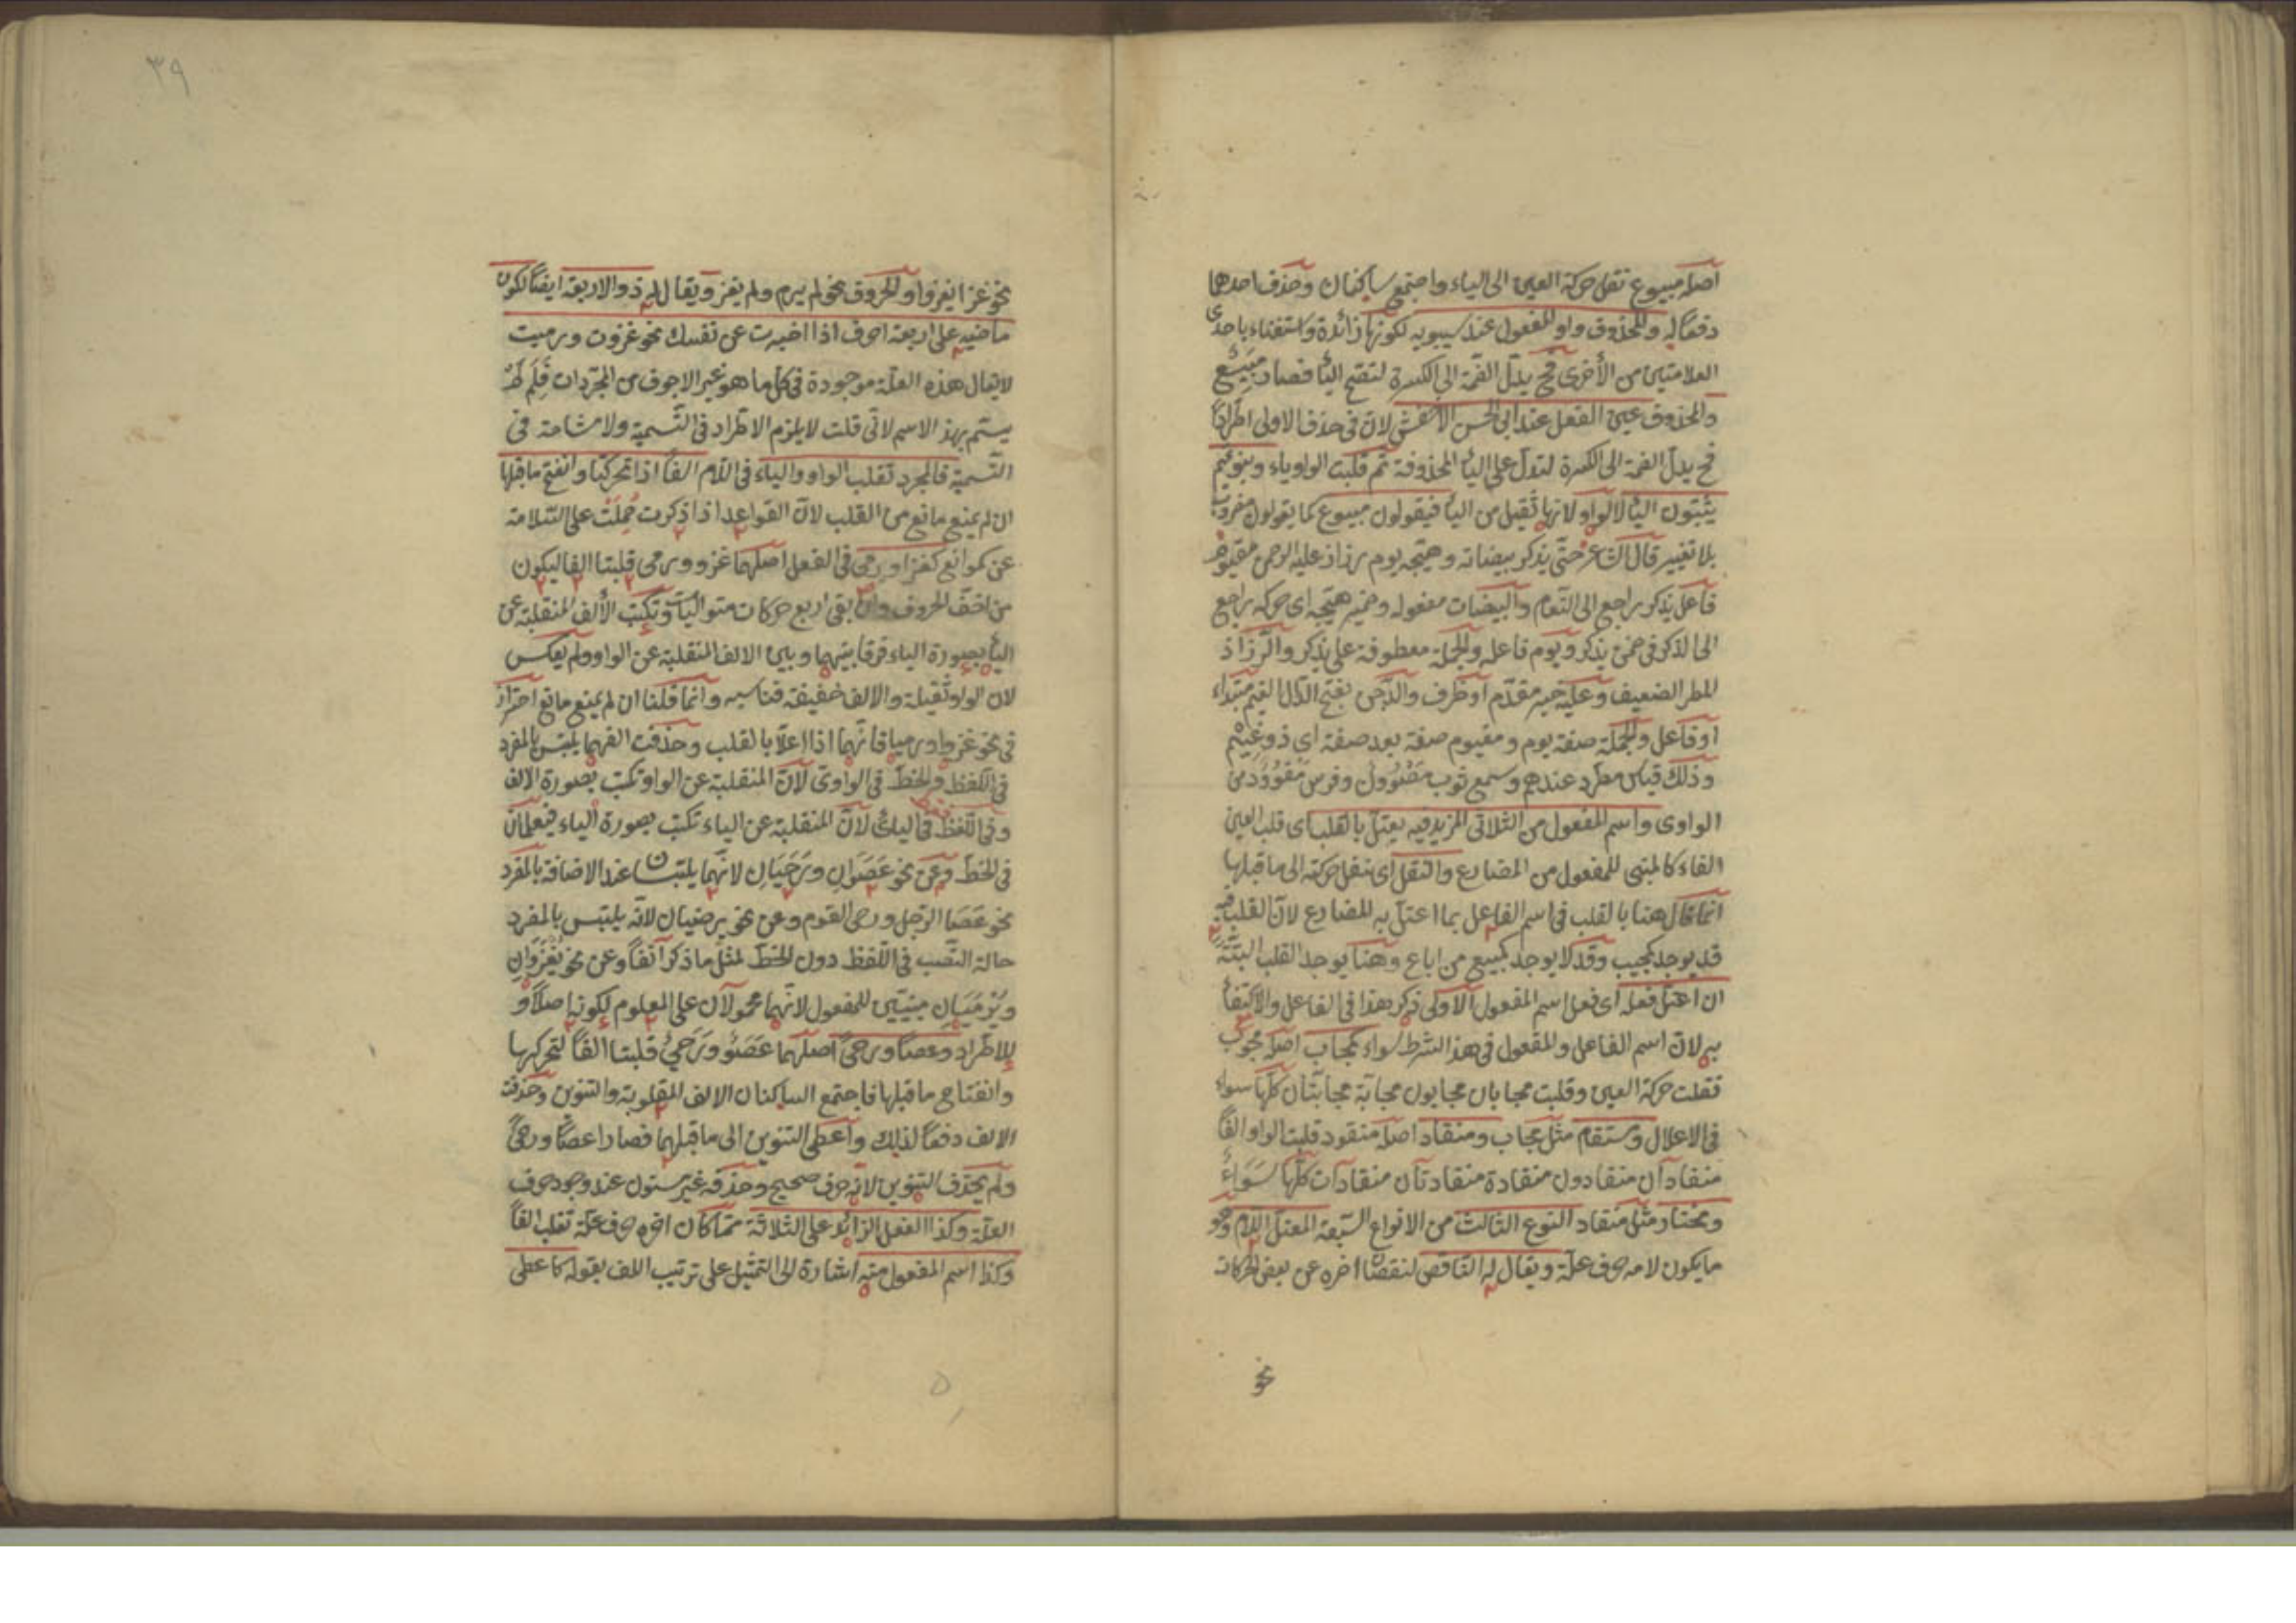 اصله مبيوع نقل حركة العين الى الياء واجتمع ساكنان وحذف احدهما
دفعًا له والمحذوف واو المفعول عند سيبويه لكونها زائدة واستغناء باحدى
العلامتين من الأخرى فح يدل الضمة الى الكسرة لتصح اليأ فصار مَبِيْع
والمحذوف عين الفعل عند ابى الحسن الاخفش لان فى حذف الاولى اطرادًا
فح يدل الضمة الى الكسرة لتدل على اليأ المحذوفة ثم قلبت الواو ياء وبنو تميم
يثبتون اليأ لا الواو لانها ثقيل من اليأ فيقولون مبيوع كما يقولون مضروب
بلا تغيير قال الشاعر حتى يذكر بيضاته وهيجه يوم رذاذ عليه الدجن مغيوم
فاعل يذكر راجع الى النعام والبيضات مفعوله وضمير هيجه اى حركه راجع
الى الذكر فى ضمن يذكر ويوم فاعله والجملة معطوفة على يذكر والرزاذ
المطر الضعيف وعليه خبر مقدم او ظرف والدجن بفتح الدال الغيم مبتداء
او فاعل والجملة صفة يوم ومغيوم صفة بعد صفة اى ذو غيم
وذلك قياس مطرد عندهم وسمع ثوب مصوول وفرس مقوود من
الواوى واسم المفعول من الثلاثى المزيد فيه يعتل بالقلب اى قلب العين
الفاء كالمبنى للمفعول من المضارع والنقل اى نقل حركته الى ما قبلها
انما قال هنا بالقلب فى اسم الفاعل بما اعتل به المضارع لان القلب فيه
قد يوجد كمجيب وقد لا يوجد كمبيع من اباع وهنا يوجد القلب البتة
ان اعتل فعله اى فعل اسم المفعول الاولى ذكر هذا فى الفاعل والاكتفأ
به لان اسم الفاعل والمفعول فى هذا الشرط سواء كمجاب اصله مجوب
نقلت حركة العين وقلبت مجابان مجابون مجابة مجابتان كلها سواء
فى الاعلال ومستقام مثل مجاب ومنقاد اصله منقود قلبت الواو الفًا
منقادان منقادون منقادة منقادتان منقادات كلها سَوَاءٌ
ومختار مثل منقاد النوع الثالث من الانواع السبعة المعتل اللام وهو
ما يكون لامه حرف علة ويقال له الناقص لنقصان اخره عن بعض الحركات
نحو
٣٩
نحو غزا يغزو او الحروف نحو لم يرم ولم يغز ويقال له ذو الاربعة ايضًا لكون
ماضيه على اربعة احرف اذا اخبرت عن نفسك نحو غزوت ورميت
لا يقال هذه العلة موجودة فى كل ما هو غير الاجوف من المجردات فلم لم
يسم بهذ الاسم لانى قلت لا يلزم الاطراد فى التسمية ولا مشاحة فى
التسمية فالمجرد تقلب الواو والياء فى اللام الفًا اذا تحركتا وانفتح ما قبلها
ان لم يمنع مانع من القلب لان القواعد اذا ذكرت حُمِلَتْ على السلامة
عن موانع كغزا ورمى فى الفعل اصلهما غزو ورمى قلبتا الفا ليكون
من اخف الحروف وان بقى اربع حركات متواليات وتكتب الألف المنقلبة عن
اليأ بصورة الياء فرقا بينهما وبين الالف المنقلبة عن الواو ولم يعكس
لان الواو ثقيلة والالف خفيفة فناسبه وانما قلنا ان لم يمنع مانع احتراز
فى نحو غزوا ورميا فانهما اذا اعلا بالقلب وحذفت الفهما يلتبس بالمفرد
فى اللفظ والخط فى الواوى لان المنقلبة عن الواو تكتب بصورة الالف
وفى اللفظ فى اليائى لان المنقلبة عن الياء تكتب بصورة الياء فيعلمان
فى الخط وعن نحو عَصَوَانِ ورَحَيَانِ لانهما يلتبسان عند الاضافة بالمفرد
نحو عَصَا الرجل ورحى القوم وعن نحو يرضيان لانه يلتبس بالمفرد
حالة النصب فى اللفظ دون الخط لمثل ما ذكر آنفًا وعن نحو يُغْزَوَانِ
ويُرْمَيَانِ مبنيين للمفعول لانهما محمولان على المعلوم لكونه اصلًا او
للاطراد وعصًا ورحىً اصلهما عَصَوٌ ورَحَىٌ قلبتا الفًا لتحركها
وانفتاح ما قبلها فاجتمع الساكنان الالف المقلوبة والتنوين وحذفت
الالف دفعًا لذلك واعطى التنوين الى ما قبلهما فصارا عصًا ورحىً
ولم يحذف التنوين لانه حرف صحيح وحذفه غير مسئول عند وجود حرف
العلة وكذا الفعل الزائد على الثلاثة مما كان اخره حرف علة تقلب الفًا
وكذا اسم المفعول منه اشارة الى التمثيل على ترتيب اللف بقوله كاعطى